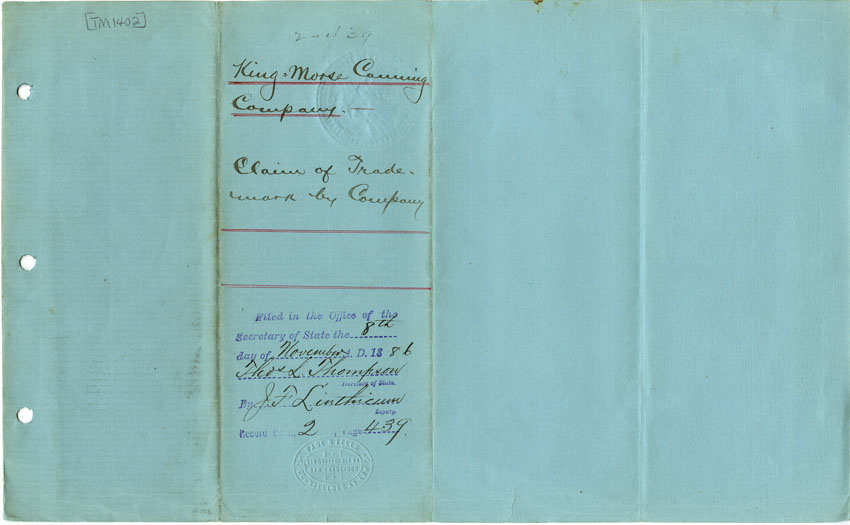 [TM1402]
King-Morse Canning
Company.
Claim of Trade-
mark by Company
Filed in the Office of the
Secretary of State the 8th
day of November A. D. 1886
Thos L. Thompson
Secretary of State.
By J. F. Linthicum
Deputy.
Record 2, Page 439.